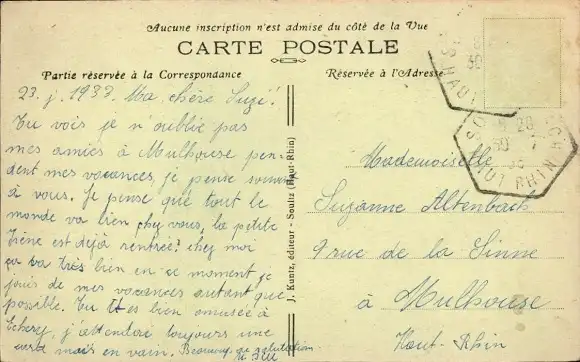 Aucune inscription n'est admise du côté de la Vue
CARTE POSTALE
Partie réservée à la Correspondance
Réservée à l'Adresse
23. j. 1933. Ma chère Suze!
Tu vois je n'oublie pas
mes amies à Mulhouse pen-
dent mes vacances, je pense souvent
à vous. Je pense que tout le
monde va bien chez vous, la petite
Irène est déjà rentrée? chez moi
ça va très bien en ce moment je
jouis de mes vacances autant que
possible. Tu t'es bien amusée à
j'attendais toujours une
mais en vain. Beaucoup de salutation
J. Kuntz, éditeur - Soultz (Haut-Rhin)
Mademoiselle
Suzanne Altenbach
9 rue de la Sinne
à Mulhouse
Haut-Rhin
HAUT RHIN